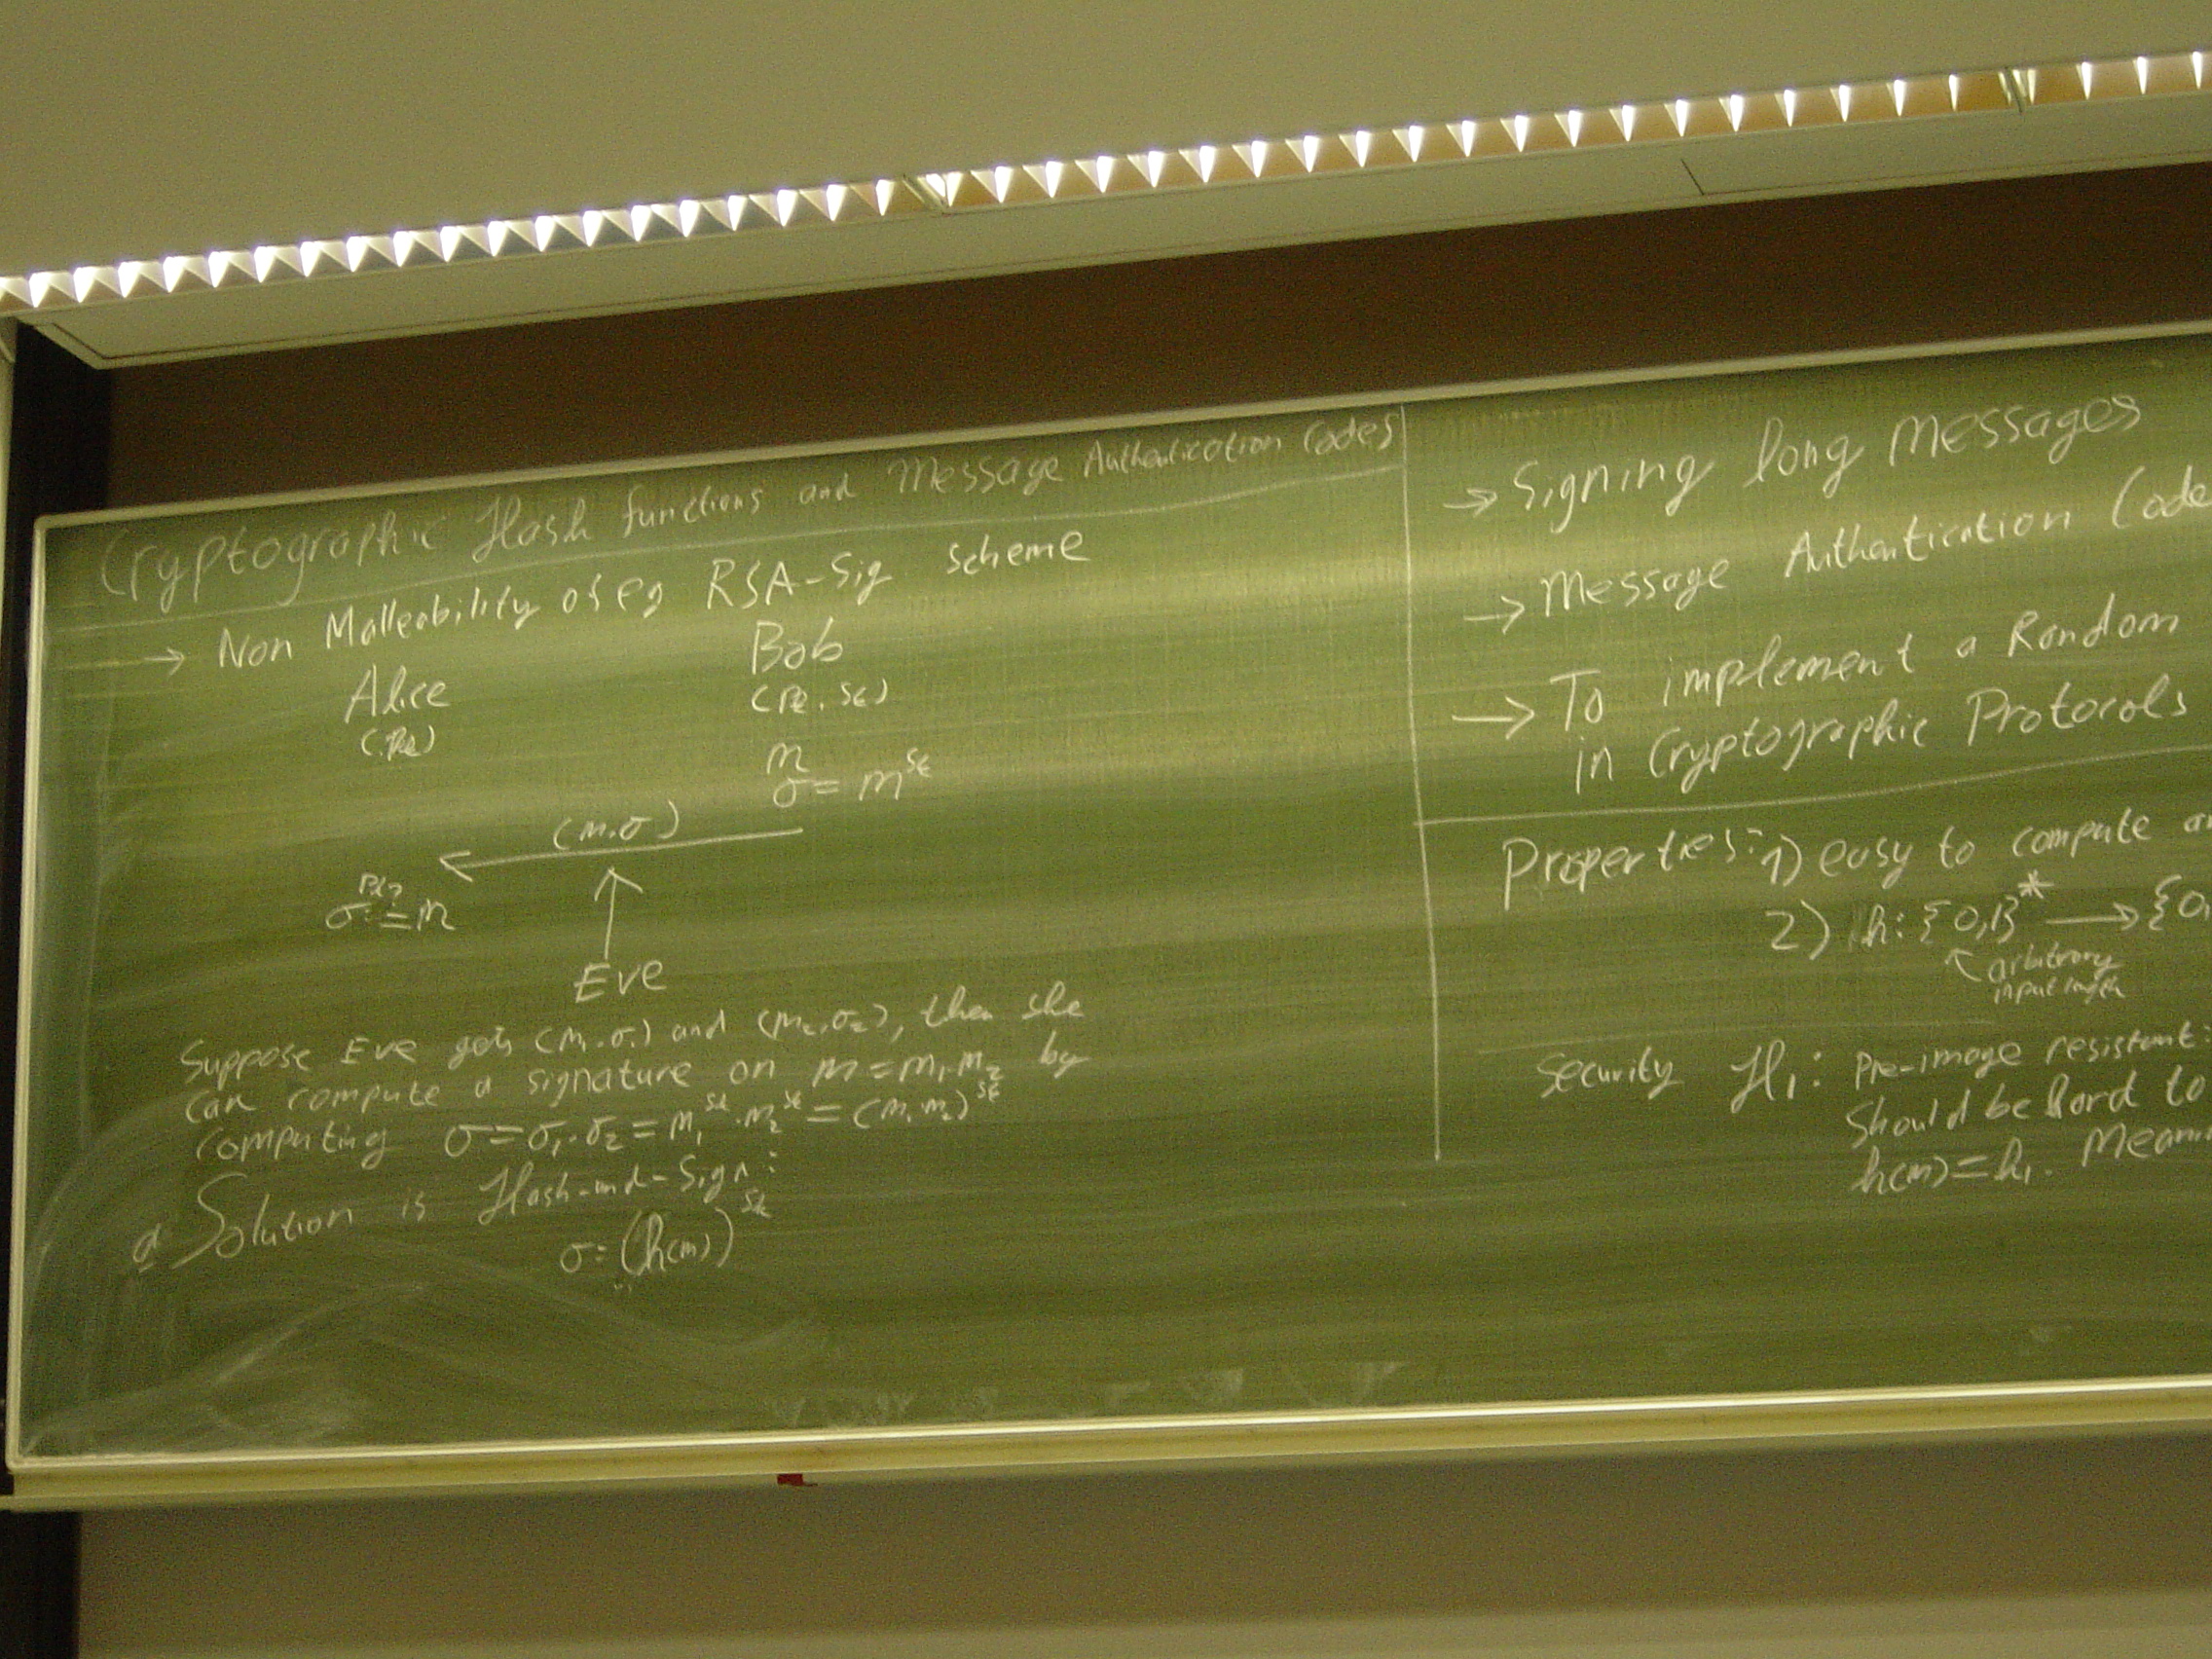 Cryptographic Hash functions and Message Authentication Codes
→ Non Malleability of eg RSA-Sig scheme
Alice Bob
(pk) (pk, sk)
m
σ = m^sk
(m, σ)
σ^pk ?= m
Eve
Suppose Eve gets (m₁, σ₁) and (m₂, σ₂), then she
can compute a signature on m = m₁·m₂ by
computing σ = σ₁·σ₂ = m₁^sk · m₂^sk = (m₁·m₂)^sk
a Solution is Hash-and-Sign:
σ = (h(m))^sk
→ Signing long messages
→ Message Authentication Code
→ To implement a Random
in Cryptographic Protocols
Properties: 1) easy to compute
2) h: {0,1}* → {0,
↖ arbitrary
input length
Security H₁: Pre-image resistant.
Should be hard to
h(m) = h₁. Mean